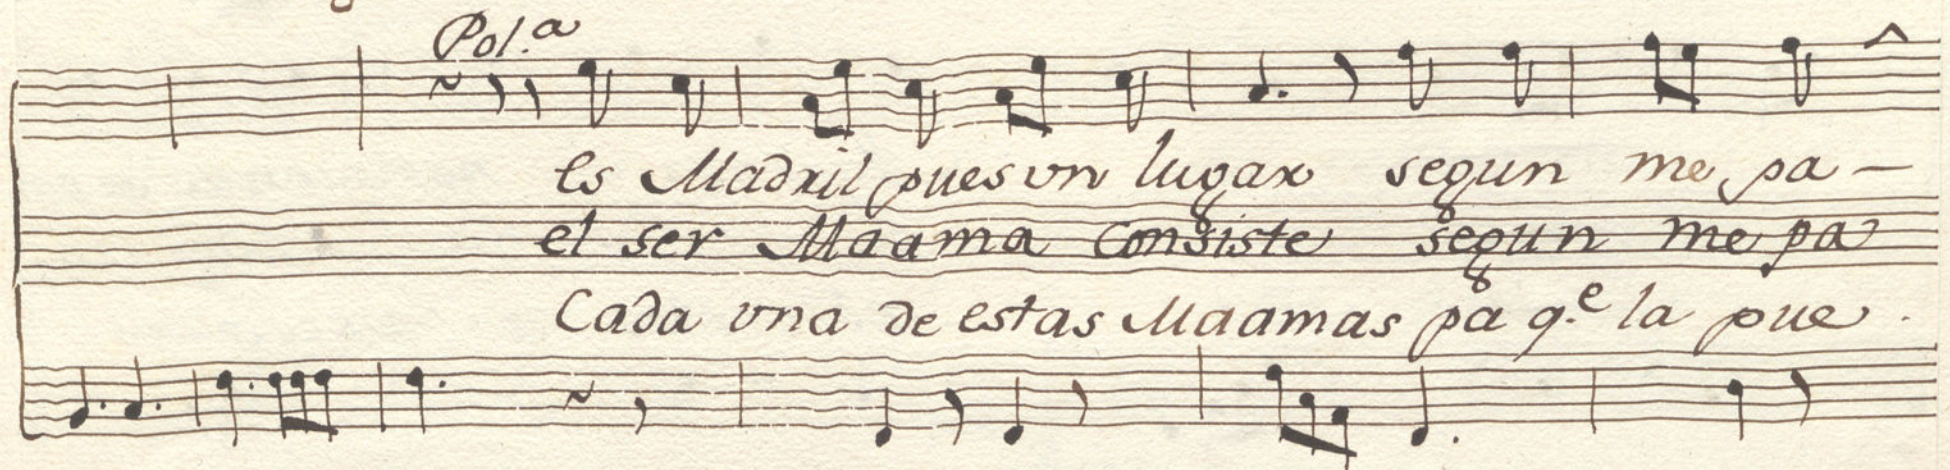 Pol.ª
es Madril pues vn lugar segun me pa-
el ser Maama consiste segun me pa
Cada vna de estas Maamas pa q.e la pue